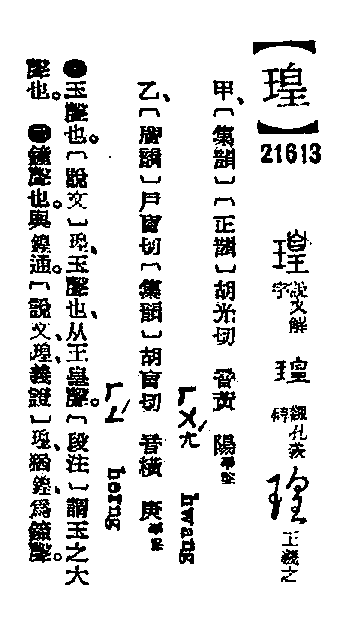 【瑝】
21613
瑝 說文解字
瑝 觀孔羨碑
瑝 王羲之
甲、〔集韻〕〔正韻〕胡光切 音黃 陽韻
ㄏㄨㄤˊ hwang
乙、〔廣韻〕戶盲切〔集韻〕胡盲切 音橫 庚韻
ㄏㄥˊ horng
❶玉聲也。〔說文〕瑝、玉聲也、从王皇聲。〔段注〕謂玉之大
聲也。❷鐘聲也。與鍠通。〔說文、瑝、義證〕瑝、猶鍠、爲鐘聲。